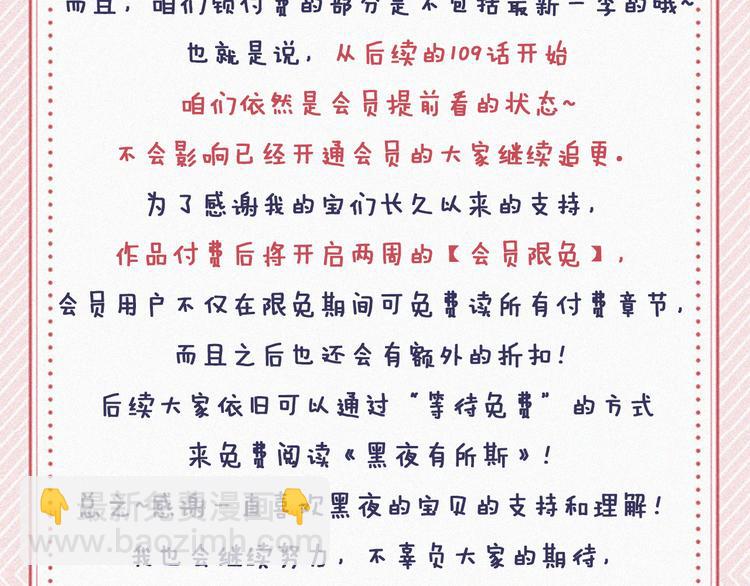 而且，咱们锁付费的部分是不包括最新一季的哦~
也就是说，从后续的109话开始
咱们依然是会员提前看的状态~
不会影响已经开通会员的大家继续追更。
为了感谢我的宝们长久以来的支持，
作品付费后将开启两周的【会员限免】，
会员用户不仅在限免期间可免费读所有付费章节，
而且之后也还会有额外的折扣！
后续大家依旧可以通过“等待免费”的方式
来免费阅读《黑夜有所斯》！
总之~感谢一直喜欢黑夜的宝贝的支持和理解！
👇最新免费漫画👇
www.baozimh.com
我也会继续努力，不辜负大家的期待，